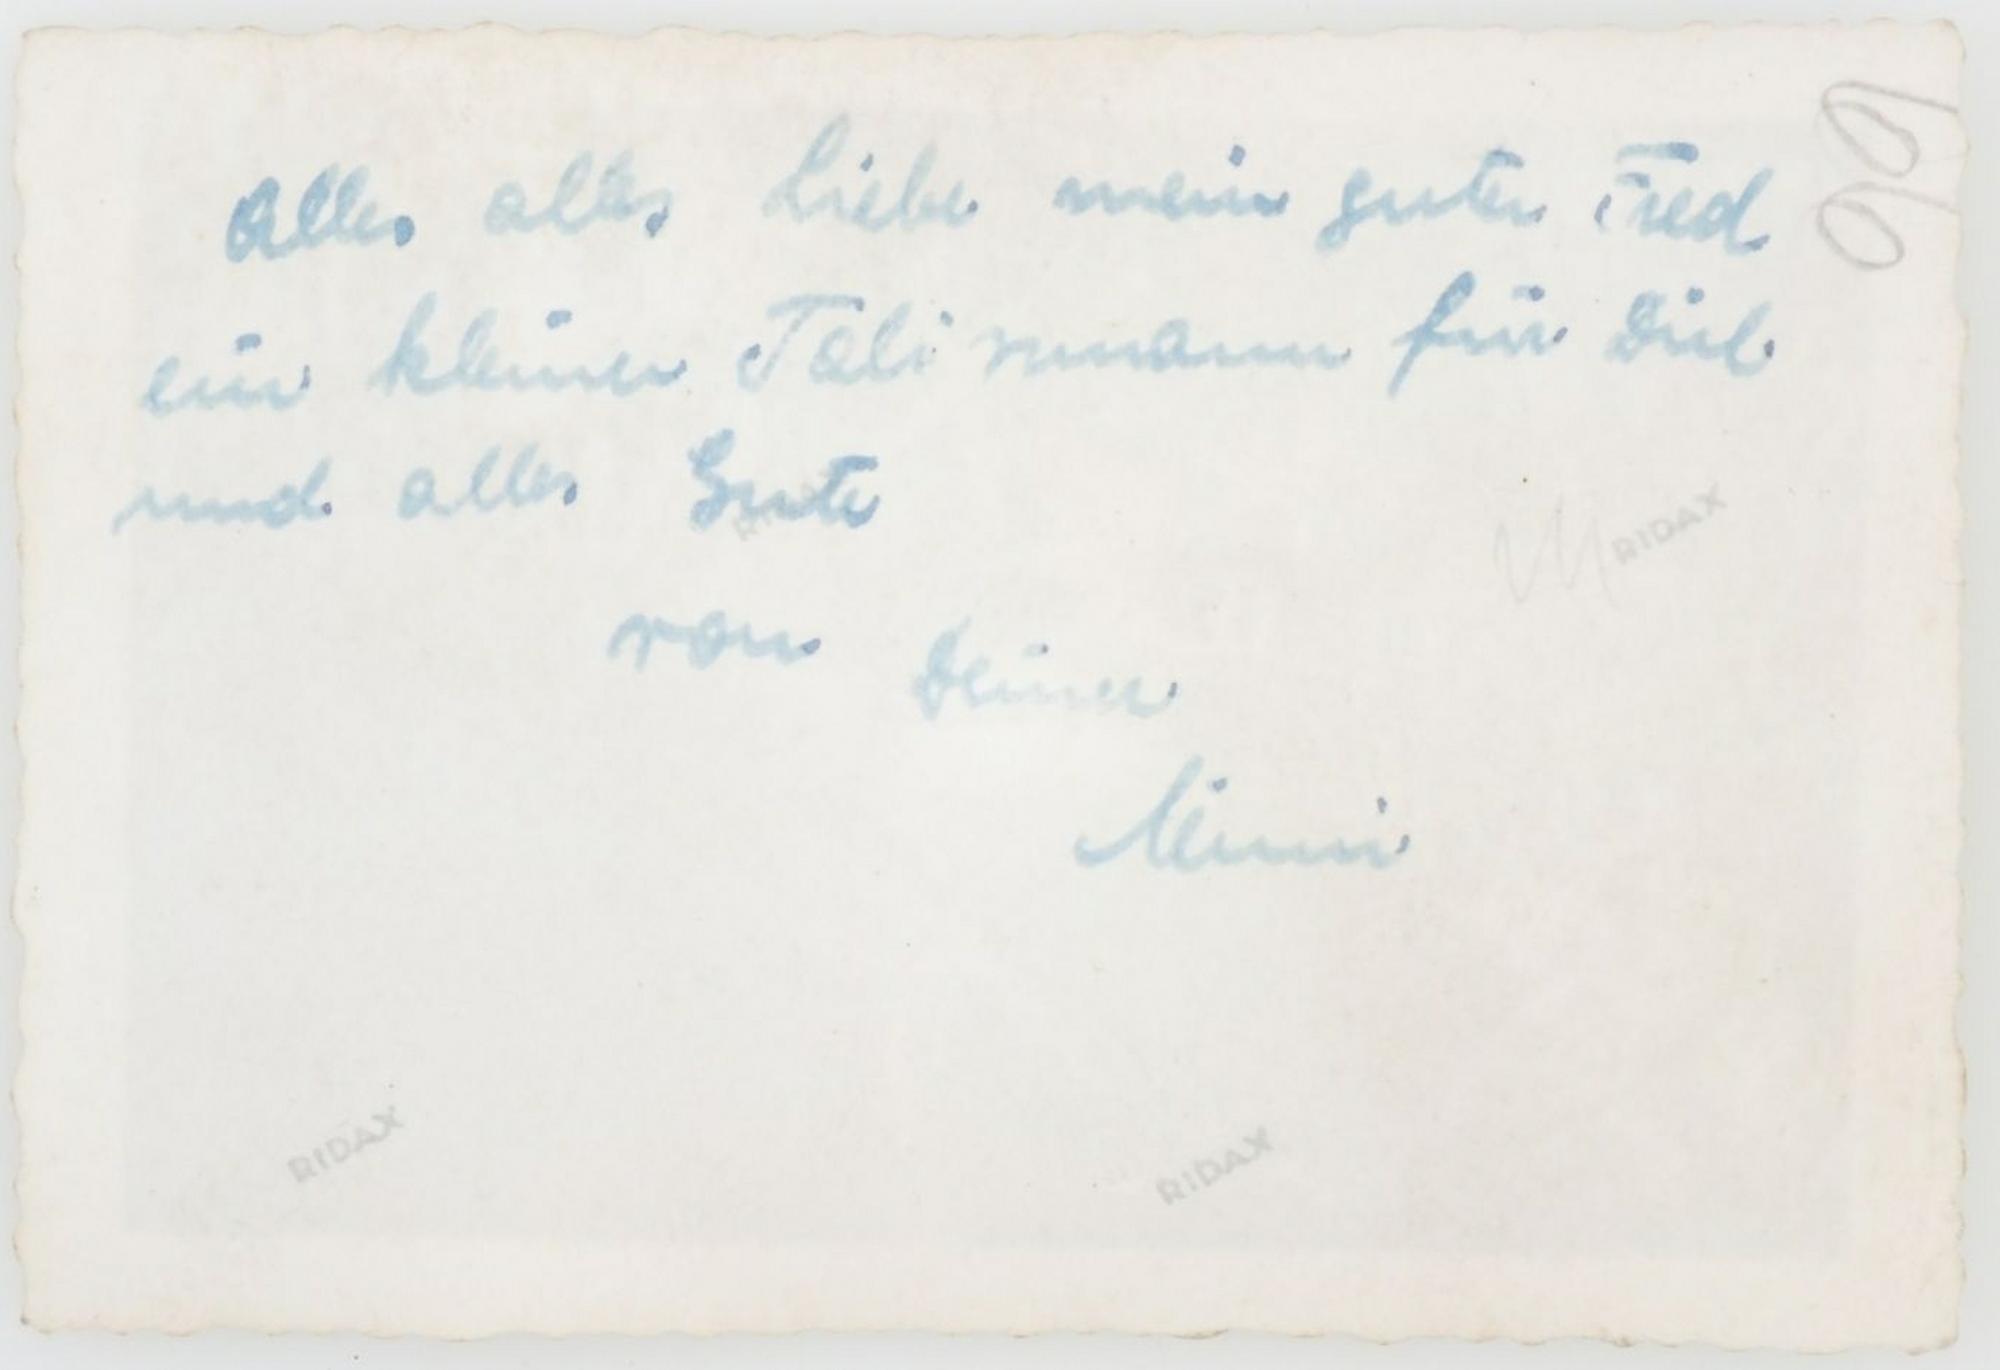 Alles alles Liebe mein guter Fred
ein kleiner Talismann für Dich
und alles Gute
von Deiner
RIDAX
RIDAX
RIDAX